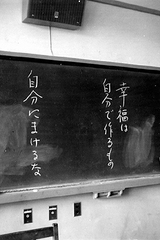 幸福は
自分で作るもの
自分にまけるな